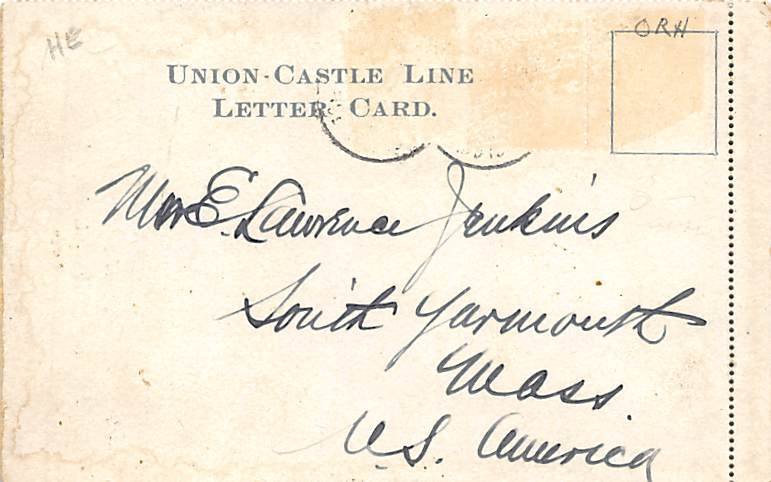 HE
ORH
UNION-CASTLE LINE
LETTER CARD.
E. Lawrence Jenkins
South Yarmouth
Mass.
U.S. America